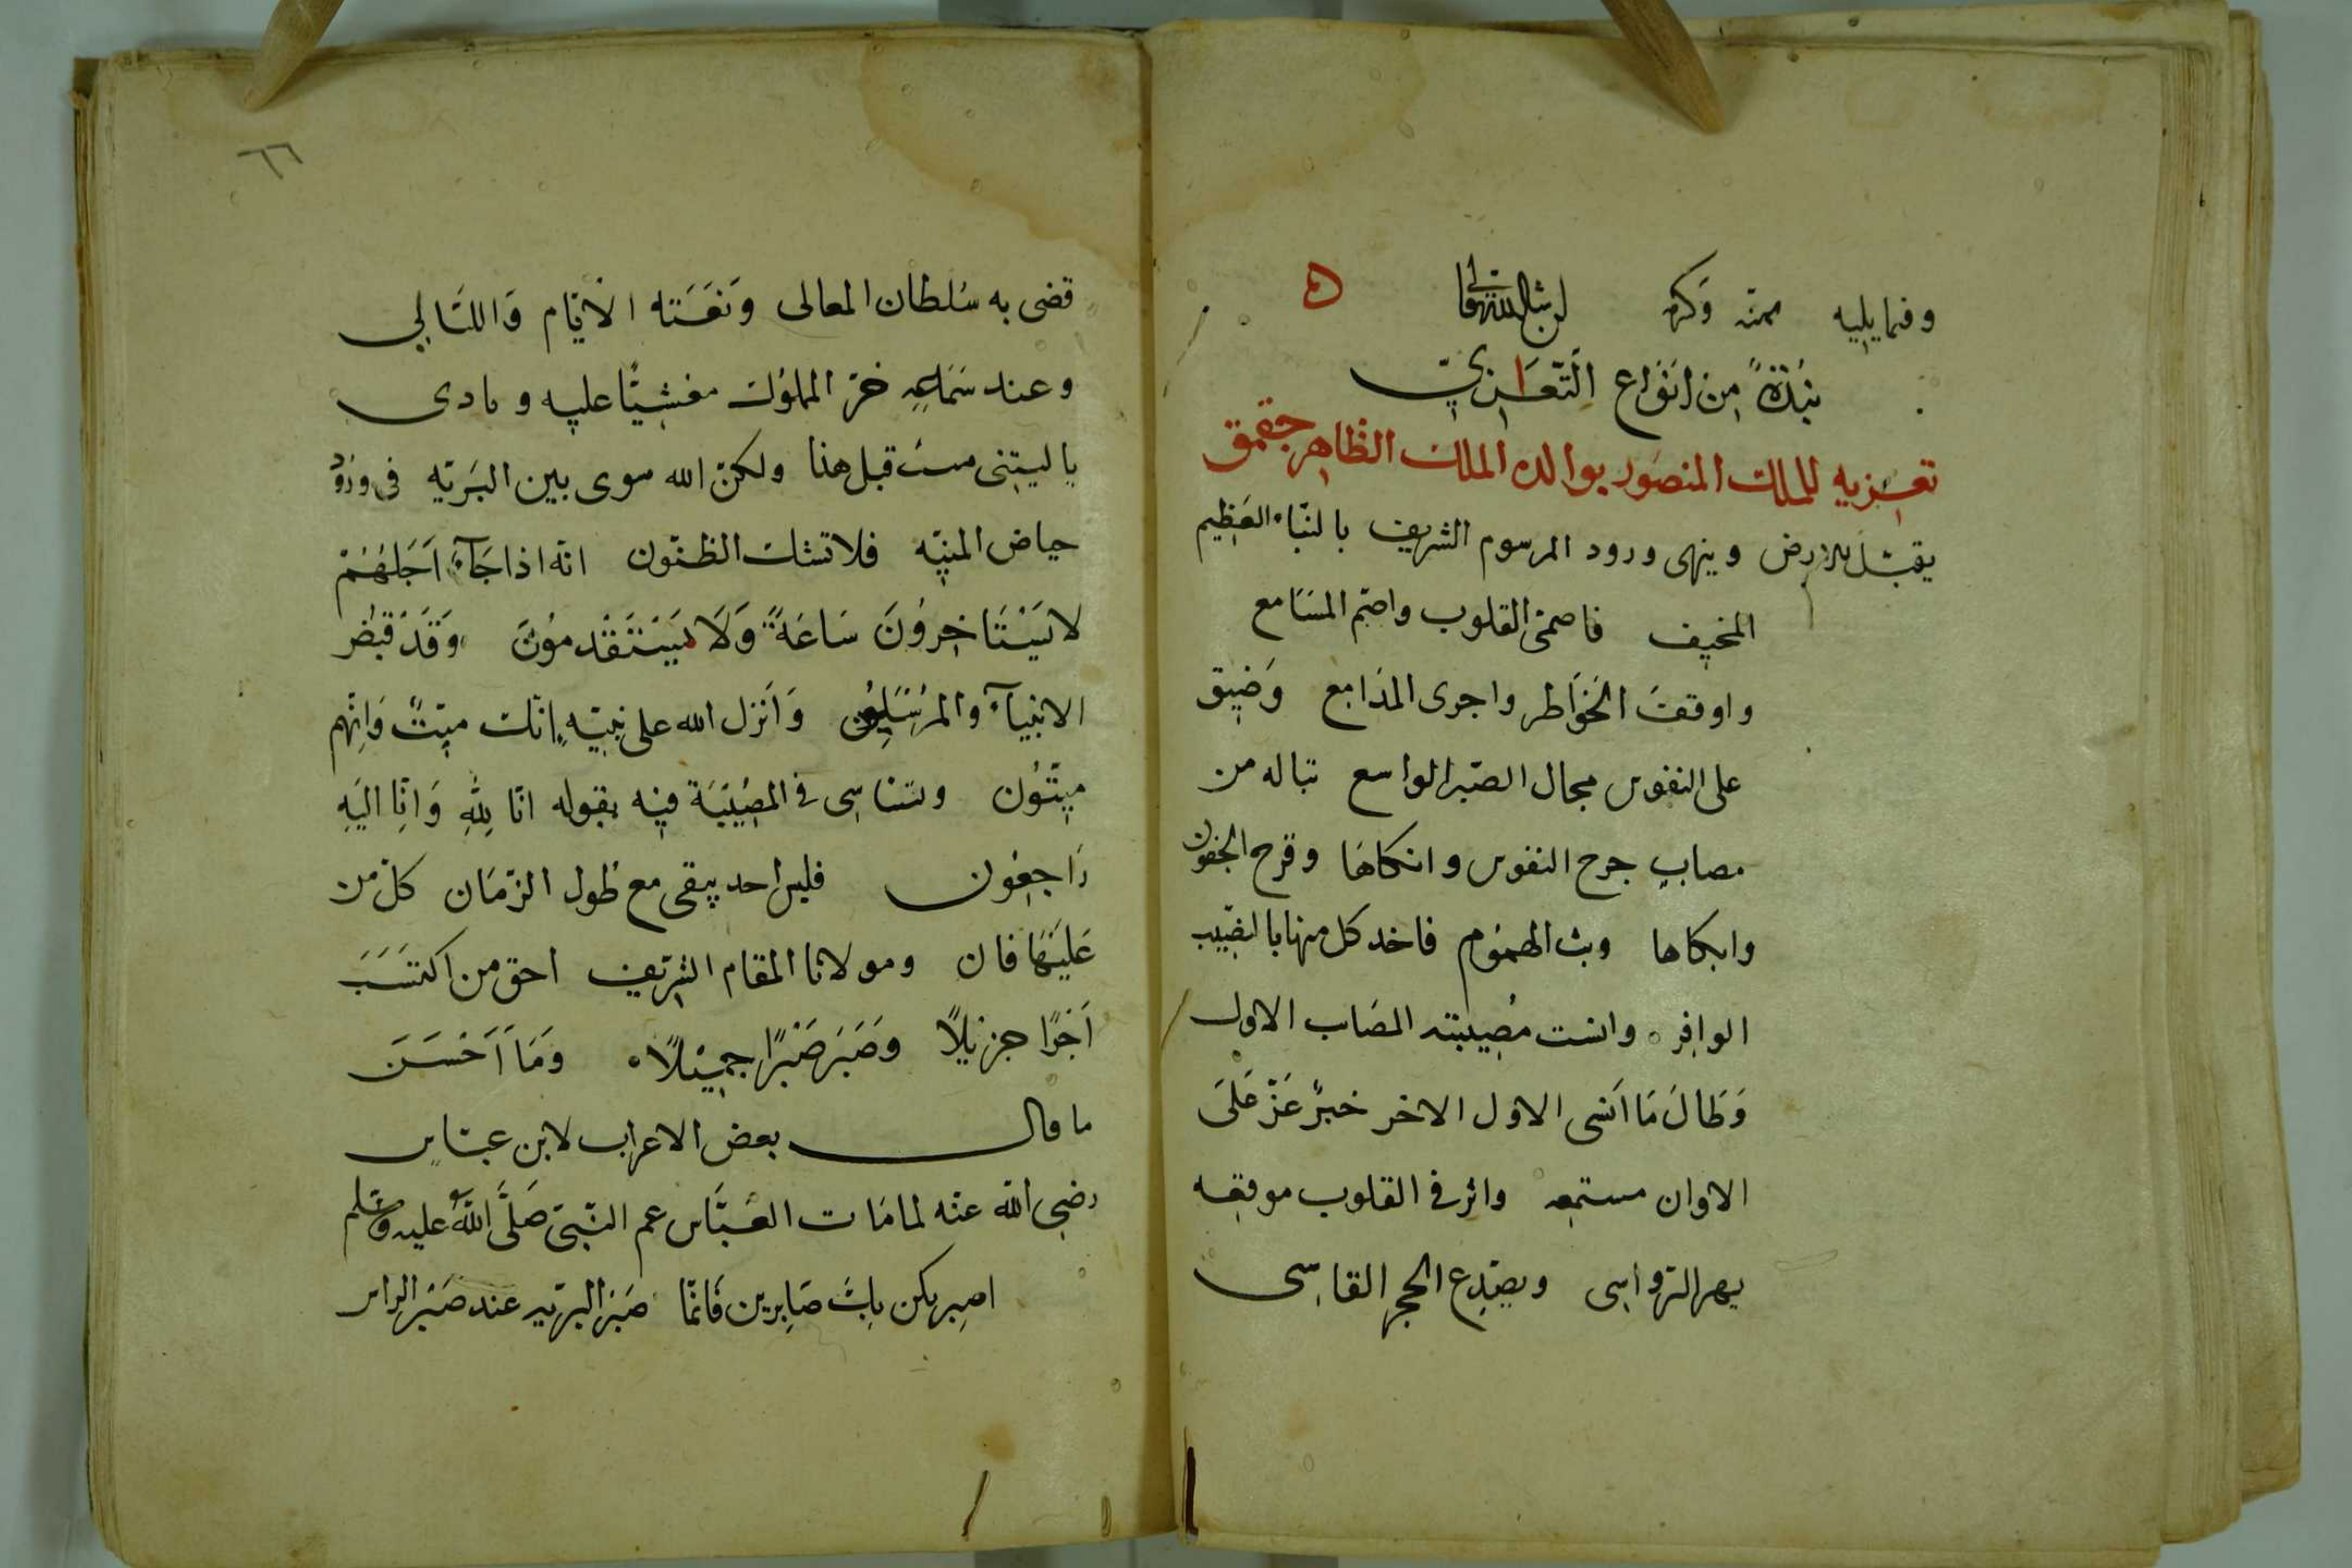 وفيما يليه بمنه وكرمه ان شاء الله تعالى
نُبْذَةً مِن انوَاع التّعَازيّ
تعزيه للملك المنصور بوالده الملك الظاهر جقمق
يقبّل الارض وينهى ورود المرسوم الشريف بالنبّاء العَظِيم
المخيف فاصمىّ القلوب واصّم المسَامع
واوقفَ الخَوَاطر واجرى المدَامع وَضيق
على النفوس مجال الصّبر الواسع تباله من
مصابٍ جرح النفوس وانكاهَا وقرح الجفون
وابكاها وبث الهمُوم فاخد كل منها بالنصّيب
الوافِر وانست مُصِيبته المصَاب الاول
وَطَالَ مَا اَنسَى الاول الاخر خبرٌ عَزّ عَلىَ
الاوان مستمعه واثر في القلوب موقعه
يهر الرّواسِى ويصّدِع الحجرِ القاسِى
٦٦
قضى به سُلطان المعالى وَنفَسَته الأيّام وَاللّيَالى
وعند سَمَاعِهِ خرّ المملوُك مغشيًا عليه ونادى
ياليتنى متُ قبل هذا ولكنّ الله سوى بين البَريّه في ورُودْ
حياض المنيّه فلا تشك الظنّون انّه اذا جَآءَ اَجَلهُمْ
لا يَسْتَاخِروُنَ سَاعَةً وَلَا يَسْتَقْدمُونَ وَقَدْ قبُضر
الانبيآء والمرسَلِوُن وَاَنزل الله على نبيّهِ اِنّك ميّتٌ وَاِنّهم
ميّتُون ولتناسِى في المصُيْبَة فيه بقوله انّا لِلّهِ وَانّا اليَهِ
رَاجِعُون فليس احد يبقى مع طول الزّمَان كلّ من
عَليَهَا فان ومولانا المقام الشرّيف احق من اكتسَبَ
اَجْرًا جزيلًا وَصَبَرَ صَبْرًا جميْلًا وَمَا اَحْسَنَ
ما قال بعض الاعراب لابن عبّاس
رضِى الله عنه لما مَات العَبَّاس عم النّبىّ صَلَّى اللّهُ عليه وَسّلم
اصبِر نكن بِكَ صَابِرين فَانّمَا صَبْر البرّيه عند صَبْر الراس